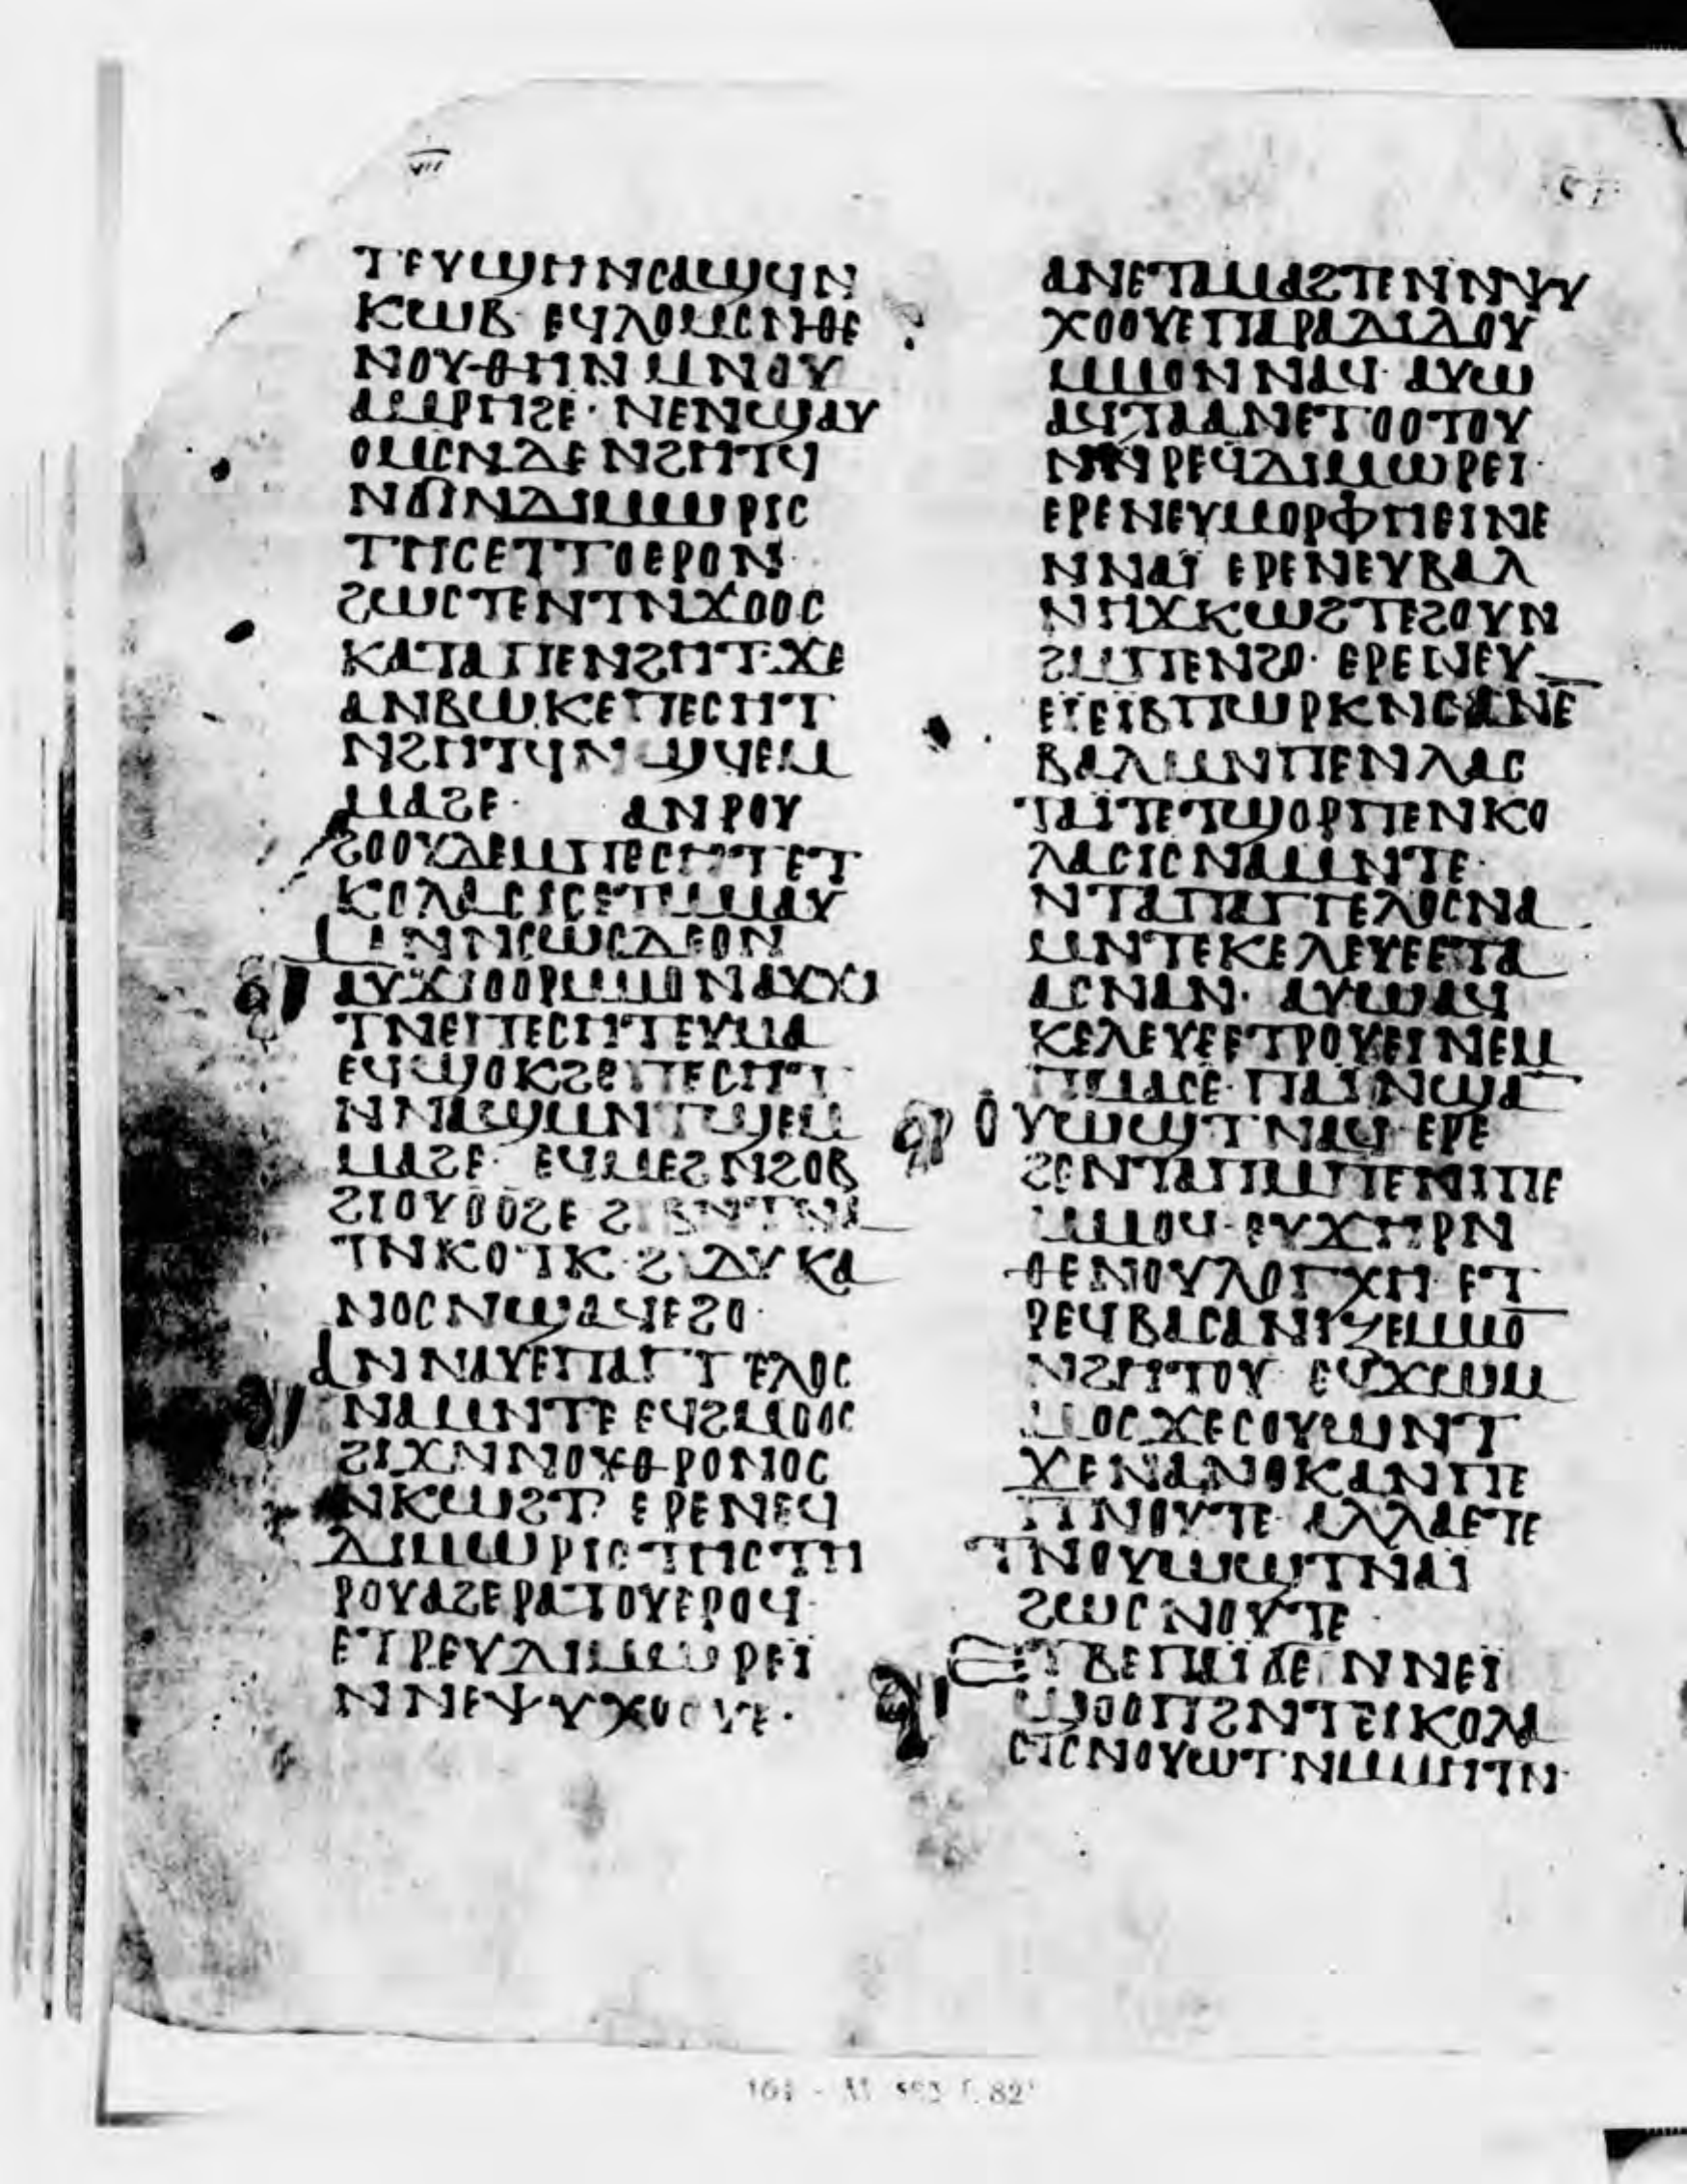 VII
ⲧⲉⲩϣⲏⲛⲥⲁϣϥⲛ
ⲕⲱⲃ ⲉϥⲗⲟⲙⲥⲛⲑⲉ
ⲛⲟⲩⲑⲏⲛ ⲙⲛⲟⲩ
ⲁⲙⲣⲏϩⲉ· ⲛⲉⲛϣⲁⲩ
ⲟⲙⲥⲛⲇⲉ ⲛϩⲏⲧϥ
ⲛϭⲓⲛⲇⲓⲙⲱⲣⲓⲥ
ⲧⲏⲥⲉⲧⲧⲟⲉⲣⲟⲛ
ϩⲱⲥⲧⲉⲛⲧⲛϫⲟⲟⲥ
ⲕⲁⲧⲁⲡⲉⲛϩⲏⲧ·ϫⲉ
ⲁⲛⲃⲱⲕⲉⲡⲉⲥⲏⲧ
ⲛϩⲏⲧϥⲛ ϣϥⲉⲙ
ⲙⲁϩⲉ· ⲁⲛⲣⲟⲩ
ϩⲟⲟⲩⲇⲉⲙⲡⲉⲥⲏⲧⲉⲧ
ⲕⲟⲗⲁⲥⲓⲥⲉⲧⲙⲙⲁⲩ
ⲙⲛⲛⲥⲱⲥⲇⲉⲟⲛ
ⲁⲩϫⲓⲟⲟⲣⲙⲙⲟⲛⲁⲩϫⲓ
ⲧⲛⲉⲡⲉⲥⲏⲧⲉⲩⲙⲁ
ⲉϥϣⲟⲕϩⲉⲡⲉⲥⲏⲧ
ⲛⲛⲁϣⲙⲛⲧϣⲉⲙ
ⲙⲁϩⲉ· ⲉϥⲙⲉϩⲛϩⲟⲃ
ϩⲓⲟⲩⲟⲟϩⲉ
ⲧⲛⲕⲟⲧⲕ ϩⲓⲇⲩⲕⲁ
ⲛⲟⲥⲛϣⲁϥⲉϩⲟ·
ⲁⲛⲛⲁⲩⲉⲡⲁⲅⲅⲉⲗⲟⲥ
ⲛⲁⲙⲛⲧⲉ ⲉϥϩⲙⲟⲟⲥ
ϩⲓϫⲛⲛⲟⲩⲑⲣⲟⲛⲟⲥ
ⲛⲕⲱϩⲧ ⲉⲣⲉⲛⲉϥ
ⲇⲓⲙⲱⲣⲓⲥⲧⲏⲥⲧⲏ
ⲣⲟⲩⲁϩⲉⲣⲁⲧⲟⲩⲉⲣⲟϥ·
ⲉⲧⲣⲉⲩⲇⲓⲙⲱⲣⲉⲓ̈
ⲛⲛⲉⲯⲩⲭⲟⲟⲩⲉ·
ⲁⲛⲉⲧⲙⲙⲁϩⲧⲉⲛⲛⲯⲩ
ⲭⲟⲟⲩⲉⲡⲁⲣⲁⲇⲓⲇⲟⲩ
ⲙⲙⲟⲛⲛⲁϥ· ⲁⲩⲱ
ⲁϥⲧⲁⲁⲛⲉⲧⲟⲟⲧⲟⲩ
ⲛⲛⲣⲉϥⲇⲓⲙⲱⲣⲉⲓ·
ⲉⲣⲉⲛⲉⲩⲙⲟⲣⲫⲏⲉⲓⲛⲉ
ⲛⲛⲁⲓ̈ ⲉⲣⲉⲛⲉⲩⲃⲁⲗ
ⲛⲏϫⲕⲱϩⲧⲉϩⲟⲩⲛ
ϩⲙⲡⲉⲛϩⲟ· ⲉⲣⲉⲛⲉⲩ
ⲉⲓⲉⲓⲃⲡⲱⲣⲕⲛⲥⲁⲛⲉ
ⲃⲁⲗⲙⲛⲡⲉⲛⲗⲁⲥ
ⲧⲁⲓ̈ⲧⲉⲧϣⲟⲣⲡⲉⲛⲕⲟ
ⲗⲁⲥⲓⲥⲛⲁⲙⲛⲧⲉ·
ⲛⲧⲁⲡⲁⲅⲅⲉⲗⲟⲥⲛⲁ
ⲙⲛⲧⲉⲕⲉⲗⲉⲩⲉⲉⲧⲁ
ⲁⲥⲛⲁⲛ· ⲁⲩⲱⲁϥ
ⲕⲉⲗⲉⲩⲉⲉⲧⲣⲟⲩⲉⲓⲛⲉⲙ
ⲡⲙⲁⲥⲉ ⲡⲁⲓⲛϣⲁ
ⲟⲩⲱϣⲧⲛⲁϥ ⲉⲣⲉ
ϩⲉⲛⲧⲁⲡⲙⲡⲉⲛⲓⲡⲉ
ⲙⲙⲟϥ· ⲉⲩϫⲏⲣⲛ
ⲑⲉⲛⲟⲩⲗⲟⲅⲭⲏ ⲉⲧ
ⲣⲉϥⲃⲁⲥⲁⲛⲓⲍⲉⲙⲙⲟ
ⲛϩⲏⲧⲟⲩ ⲉϥϫⲱⲙ
ⲙⲟⲥ ϫⲉⲥⲟⲩⲱⲛⲧ
ϫⲉⲛⲁⲛⲟⲕⲁⲛⲡⲉ
ⲡⲛⲟⲩⲧⲉ ⲁⲗⲗⲁⲉⲧⲉ
ⲧⲛⲟⲩⲱϣⲧⲛⲁⲓ̈
ϩⲱⲥⲛⲟⲩⲧⲉ·
ⲉⲧⲃⲉⲡⲁⲓ̈ ϭⲉ ⲛⲛⲉⲓ̈
ϣⲟⲟⲡϩⲛⲧⲉⲓⲕⲟⲗⲁ
ⲥⲓⲥⲛⲟⲩⲱⲧⲛⲙⲙⲏⲧⲛ·